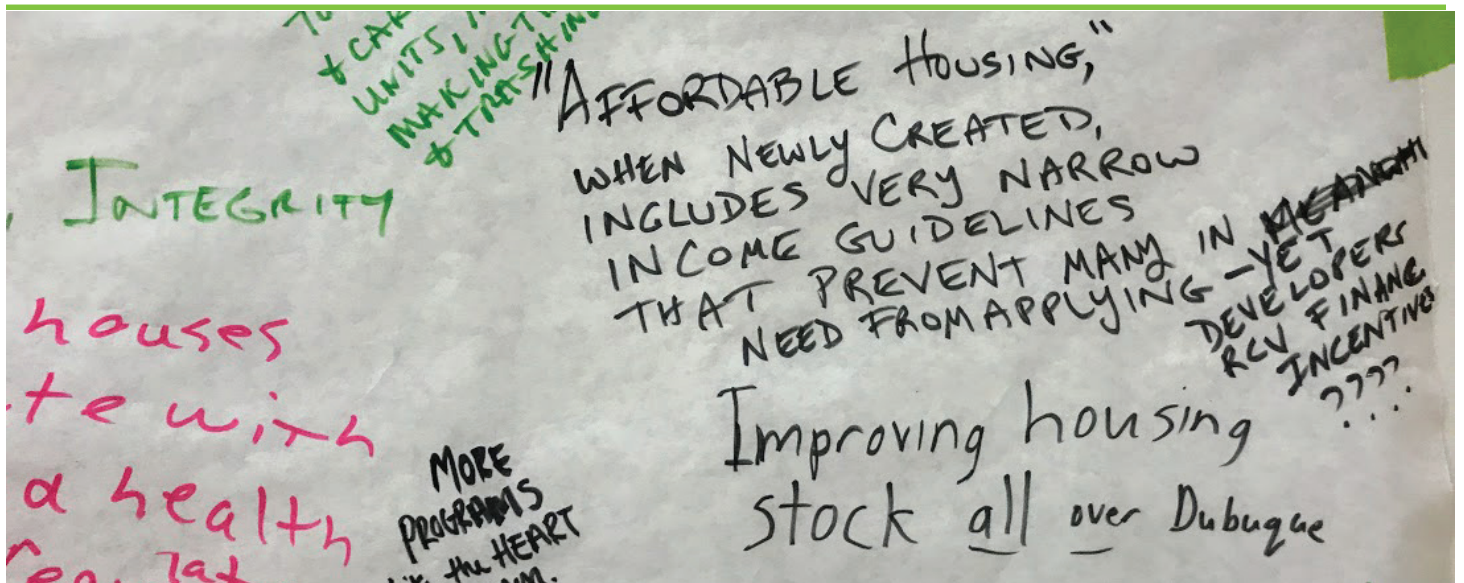 & CAR
UNITS,
MAKING
& TRASHING
, INTEGRITY
houses
te with
a health
"AFFORDABLE HOUSING,"
WHEN NEWLY CREATED,
INCLUDES VERY NARROW
INCOME GUIDELINES
THAT PREVENT MANY IN
NEED FROM APPLYING - YET
DEVELOPERS
RCV FINANC
INCENTIVES
????
Improving housing
stock all over Dubuque
MORE
PROGRAMS
the HEART